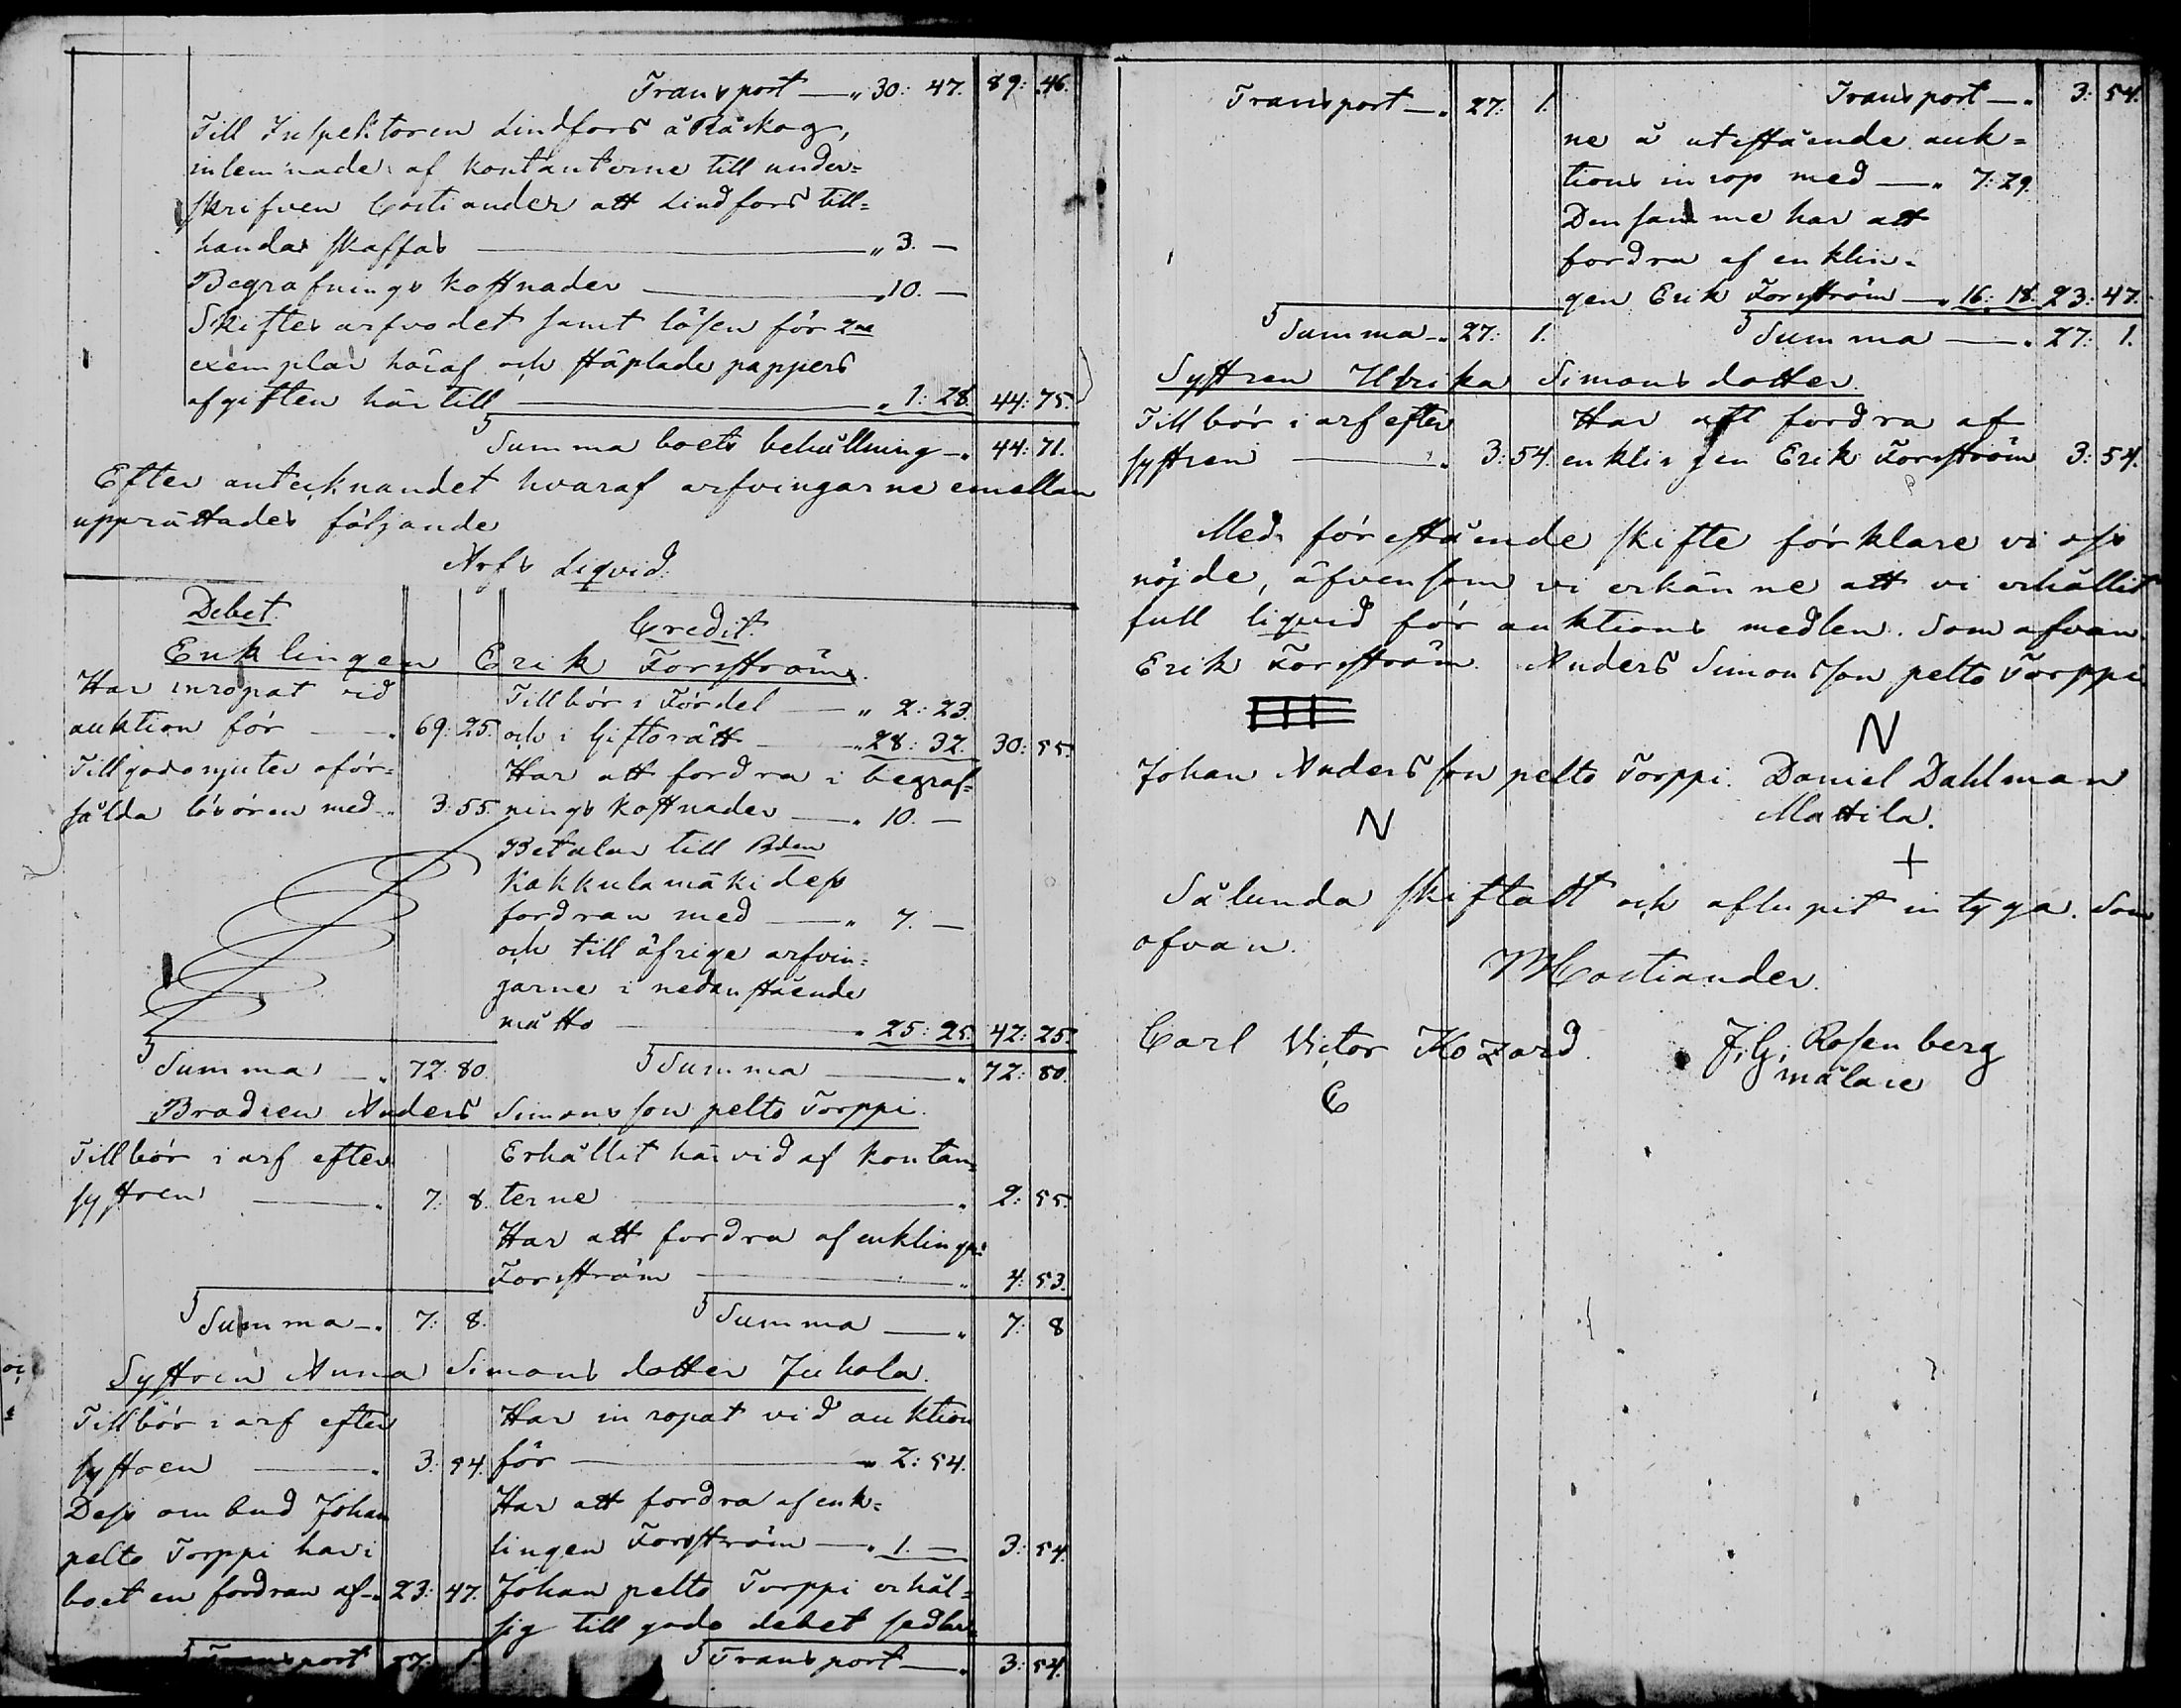 Transport — " 30: 47. 89: 46.
Till Inspektoren Lindfors å Träskog,
inlemnades af kontanterne till under=
skrifven Costiander att Lindfors till=
handas skaffas — " 3. —
Begrafnings kostnader — " 10. —
Skiftes arfvodet samt lösen för 2ne
exemplar häraf och stäplade pappers
afgiften härtill — " 1: 28. 44: 75.
Summa boets behållning — " 44: 71.
Efter antecknandet hvaraf arfvingarne emellan
upprättades följande
Arfs Liqvid.
Debet. Credit.
Enklingen Erik Forsström.
Har inropat vid
auktion för — " 69: 25.
Tillgodonjuter oför=
sålda lösören med — " 3: 55.
Summa — " 72: 80.
Tillbör i Fördel — " 2: 23.
och i Giftorätt — " 28: 32. 30: 55.
Har att fordra i begraf=
nings kostnader — " 10. —
Betalar till Bden
Kakkulamäki dess
fordran med — " 7. —
och till öfrige arfvin=
garne i nedanstående
måtto — " 25: 25. 42: 25.
Summa — " 72: 80.
Brodren Anders Simonsson pelto Torppi.
Tillbör i arf efter
systren — " 7: 8.
Summa — " 7: 8.
Erhållit härvid af kontan=
terne — " 2: 55.
Har att fordra af enklingen
Forsström — " 4: 53.
Summa — " 7: 8
Systren Anna Simons dotter Juhola.
Tillbör i arf efter
systren — " 3: 54.
Dess ombud Johan
pelto Torppi har i
boet en fordran af — " 23: 47.
Transport 27: 1.
Har inropat vid auktion
för — " 2: 54.
Har att fordra af enk=
lingen Forsström — " 1. — 3: 54.
Johan pelto Torppi erhål=
sig till godo debet sedlar=
Transport — " 3: 54.
Transport — " 27: 1.
Summa — " 27: 1.
Transport — " 3: 54.
ne å utestående auk=
tions inrop med — " 7: 29.
Densamme har att
fordra af enklin=
gen Erik Forsström — " 16: 18. 23: 47.
Summa — " 27: 1.
Systren Ulrika Simons dotter.
Tillbör i arf efter
systren — " 3: 54.
Har att fordra af
enklingen Erik Forsström 3: 54.
Med förestående skifte förklare vi oss
nöjde, äfvensom vi erkänne att vi erhållit
full liqvid för auktions medlen. Som ofvan.
Erik Forsström. Anders Simonsson pelto Torppi.
N
Johan Andersson pelto Torppi. Daniel Dahlman
N Mattila.
+
Sålunda skiftadt och aflupit intyga. Som
ofvan.
M Costiander.
Carl Victor Kozard. J. G. Rosenberg
C målare